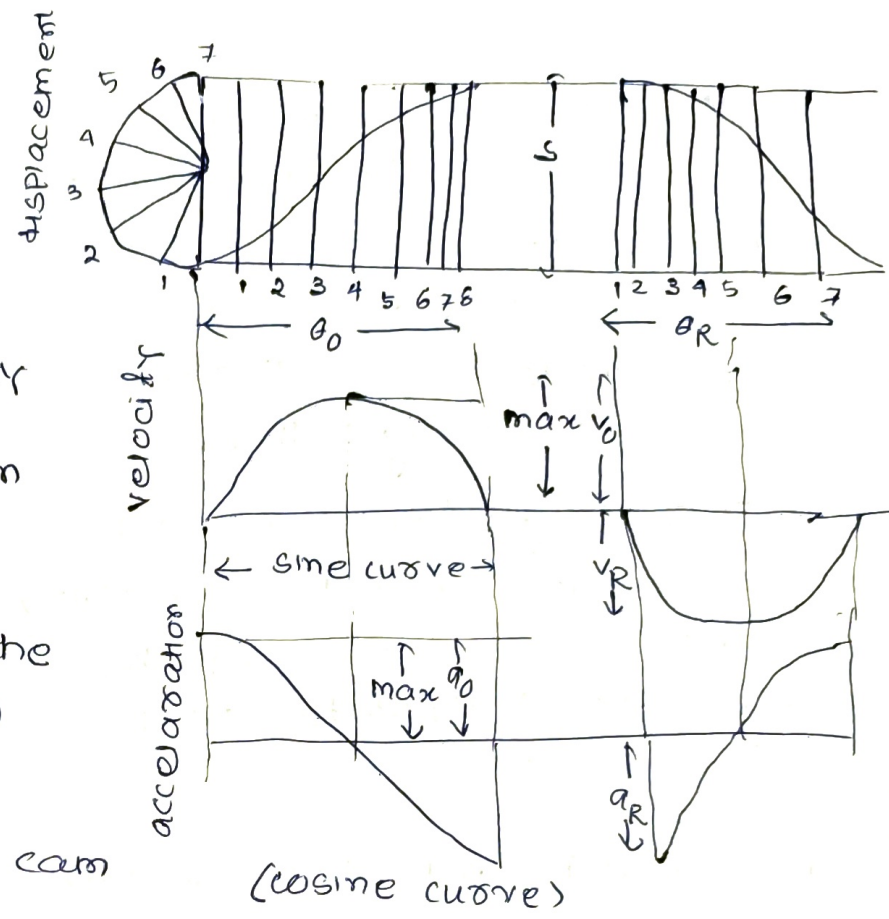 displacement
7
6
5
4
3
2
1
1 2 3 4 5 6 7 8
s
1 2 3 4 5 6 7
θ0
θR
velocity
max v0
vR
← sine curve →
y
n
he
accelaration
max a0
aR
cam
(cosine curve)